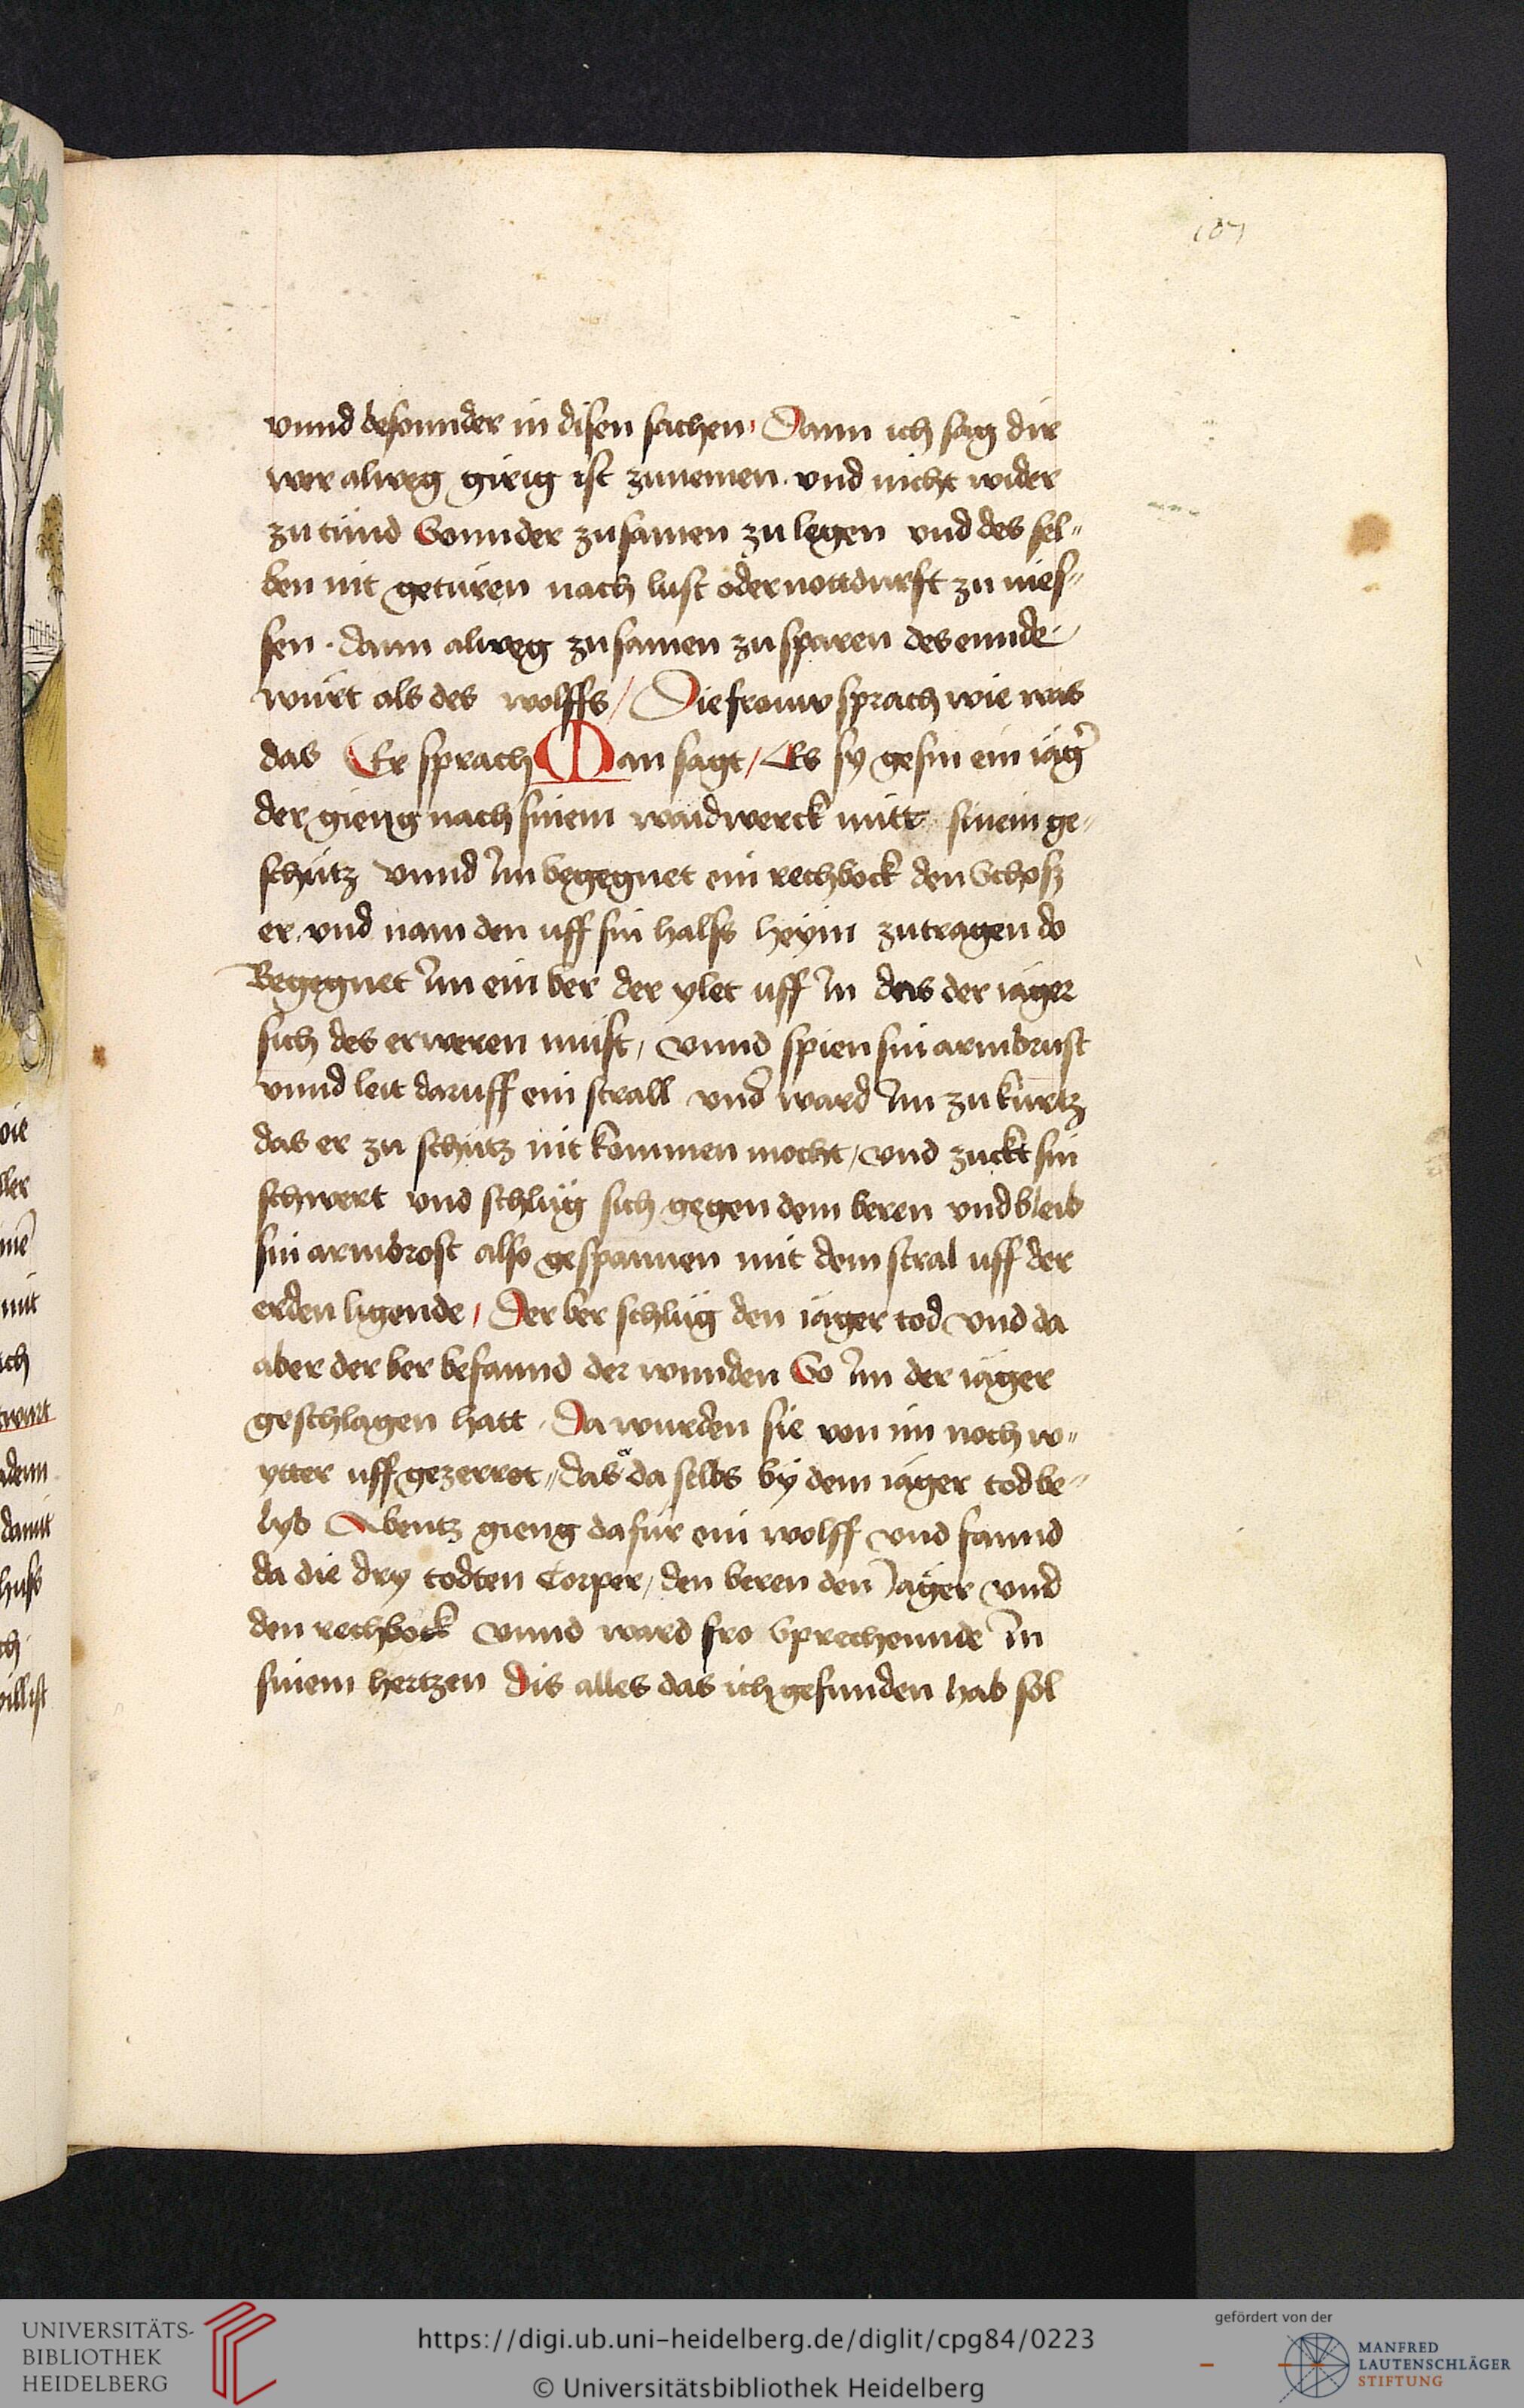 107
vnnd besonnder in disen sachen, Dann ich sag dir
wer alweg girig ist zunemen. vnd nicht wider
zu tünd Sonnder zusamen zu legen vnd des sel„
ben nit getüren nach lust oder nottdurfft zu nies„
sen. dann alweg zusamen zu sparen des ennde
würt als des wolffs / Die frouw sprach wie was
das Er sprach Man sagt / Es sy gesin ein iäg̉
der gieng nach sinem waidwerck mitt sinem ge„
schütz vnnd im begegnet ein rechbock den Schosz
er vnd nam den uff sin halss heyin zutragen do
Begegnet im ein ber der ylet uff in das der iäger
sich des erweren müst, vnnd spien sin armbrust
vnnd leit daruff ein strall vnd ward im zu kürtz
das er zu schütz nit kommen mocht, vnd zuckt sin
schwert vnd schlüg sich gegen dem beren vnd bleib
sin armbrost also gespannen mit dem stral uff der
erden ligende, Der ber schlüg den iäger tod vnd da
aber der ber befannd der wunden So im der iäger
geschlagen hatt. Da wurden sie von im noch w„
ytter uff gezerret, das er da selbs by dem iäger tod be„
lyb Abentz gieng da für ein wolff vnd fannd
da die dry todten Corper, den beren den Jäger vnd
den rechbock vnnd ward fro Sprechennde in
sinem hertzen Dis alles das ich gefunden hab sol
UNIVERSITÄTS-
BIBLIOTHEK
HEIDELBERG
https://digi.ub.uni-heidelberg.de/diglit/cpg84/0223
© Universitätsbibliothek Heidelberg
gefördert von der
MANFRED
LAUTENSCHLÄGER
STIFTUNG